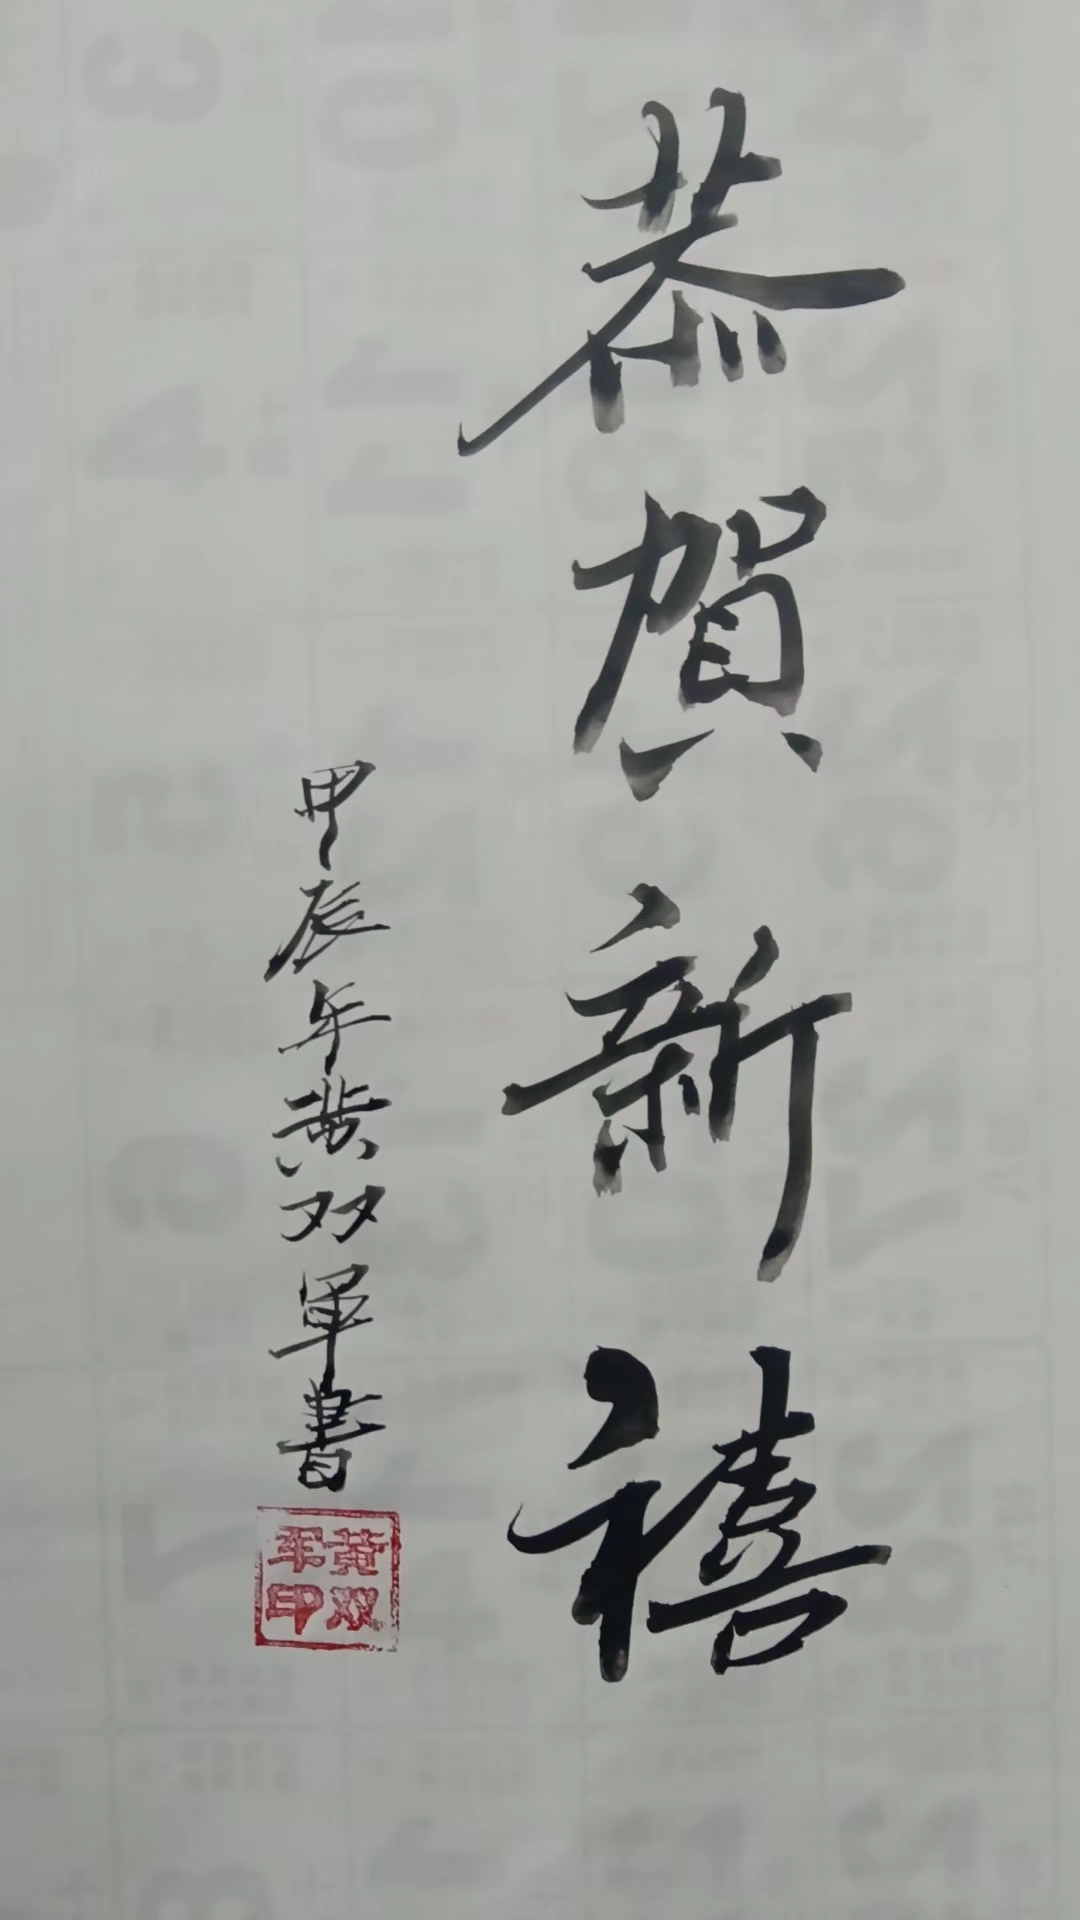 恭賀新禧
甲辰年黄双軍書
黄双
军印